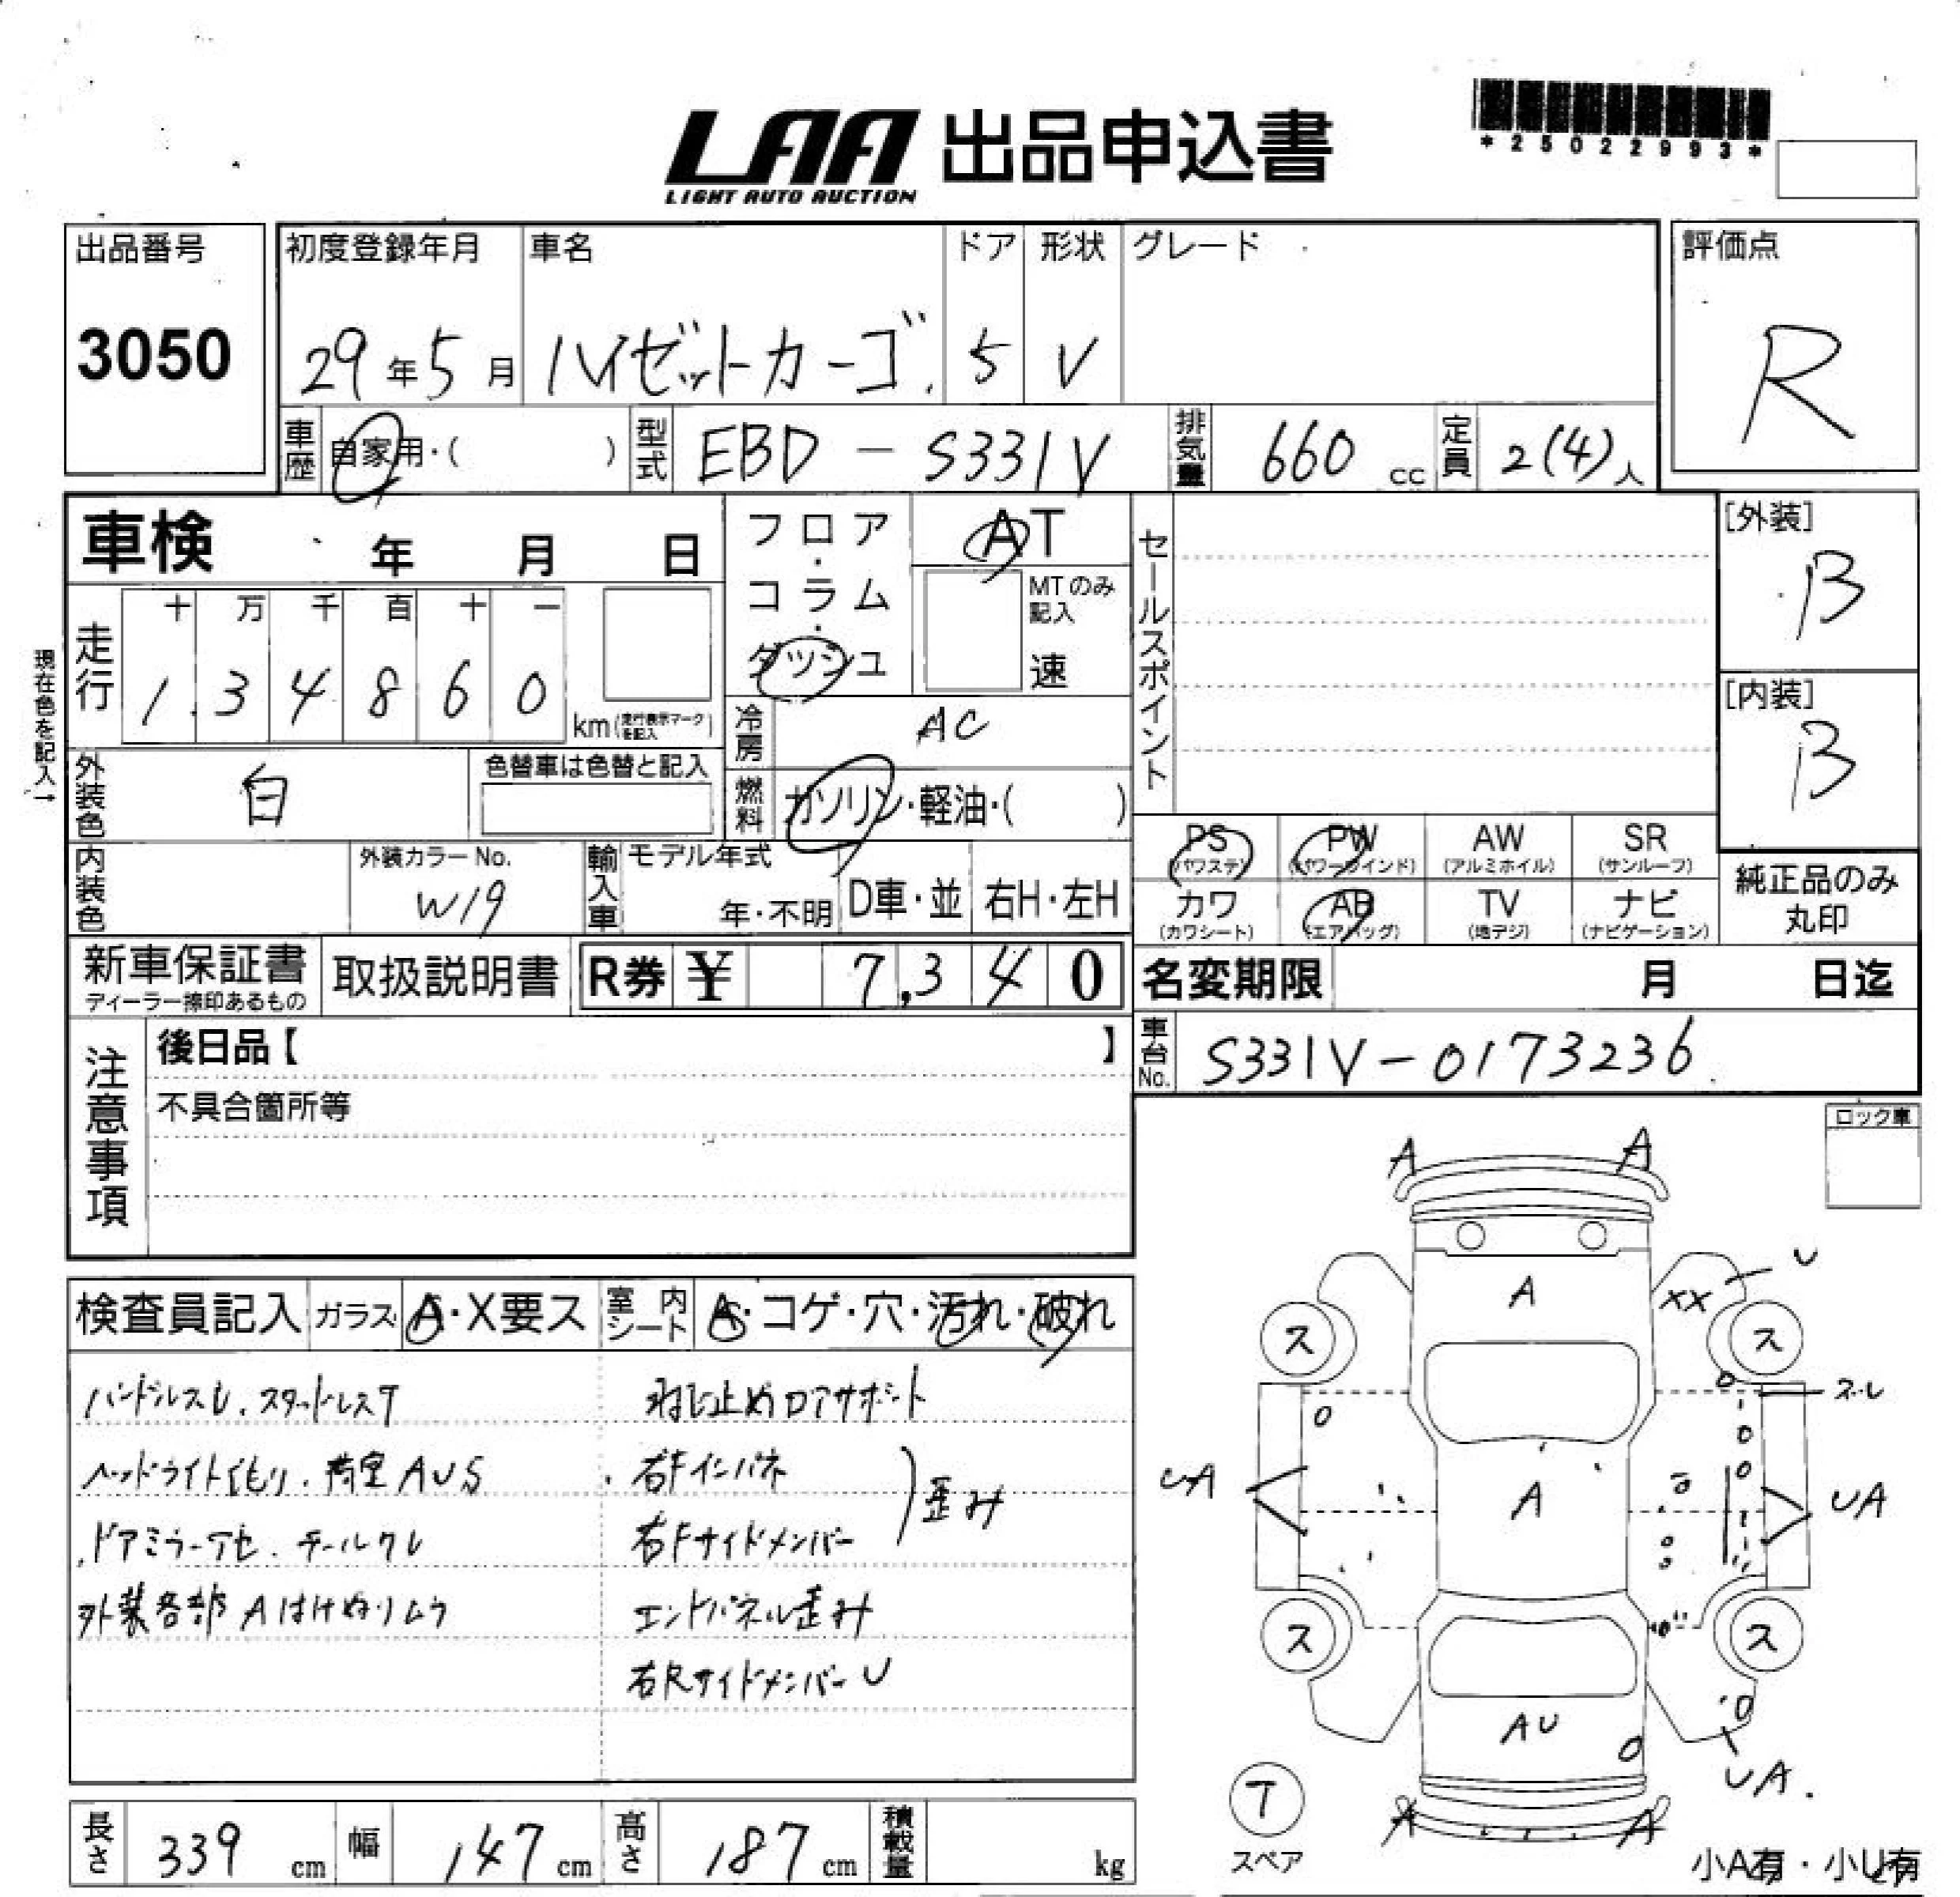 LAA 出品申込書
LIGHT AUTO AUCTION
*25022993*
出品番号
3050
初度登録年月
29年5月
車名
ハイゼットカーゴ
ドア
5
形状
V
グレード
評価点
R
車歴
自家用・( )
型式
EBD-S331V
排気量
660 cc
定員
2(4)人
車検 年 月 日
現在色を記入→
走行
十 万 千 百 十 一
1 3 4 8 6 0
km(走行表示マークを記入)
フロア・コラム・ダッシュ
AT
MTのみ記入
速
冷房
AC
燃料
ガソリン・軽油・( )
外装色
白
色替車は色替と記入
内装色
外装カラーNo.
W19
輸入車
モデル年式
年・不明
D車・並
右H・左H
セールスポイント
[外装]
B
[内装]
B
PS
(パワステ)
PW
(パワーウインド)
AW
(アルミホイル)
SR
(サンルーフ)
カワ
(カワシート)
AB
(エアバッグ)
TV
(地デジ)
ナビ
(ナビゲーション)
純正品のみ
丸印
新車保証書
ディーラー捺印あるもの
取扱説明書
R券 ¥ 7,340
名変期限 月 日迄
車台No.
S331V-0173236
注意事項
後日品【 】
不具合箇所等
ロック車
検査員記入
ガラス
A・X要ス
室内シート
A・コゲ・穴・汚れ・破れ
ハンドルスレ.スタッドレスT
ヘッドライトくもり.荷室AUS
ドアミラーアセ.テールワレ
外装各部Aはけぬりムラ
ねじ止めロアサポート
右Fインパネ
右Fサイドメンバー
歪み
エンドパネル歪み
右RサイドメンバーU
A
A
U
A
XX
ス
ス
スレ
UA
A
UA
ス
ス
AU
UA.
T
スペア
A
A
小A有・小U有
長さ
339 cm
幅
147 cm
高さ
187 cm
積載量
kg